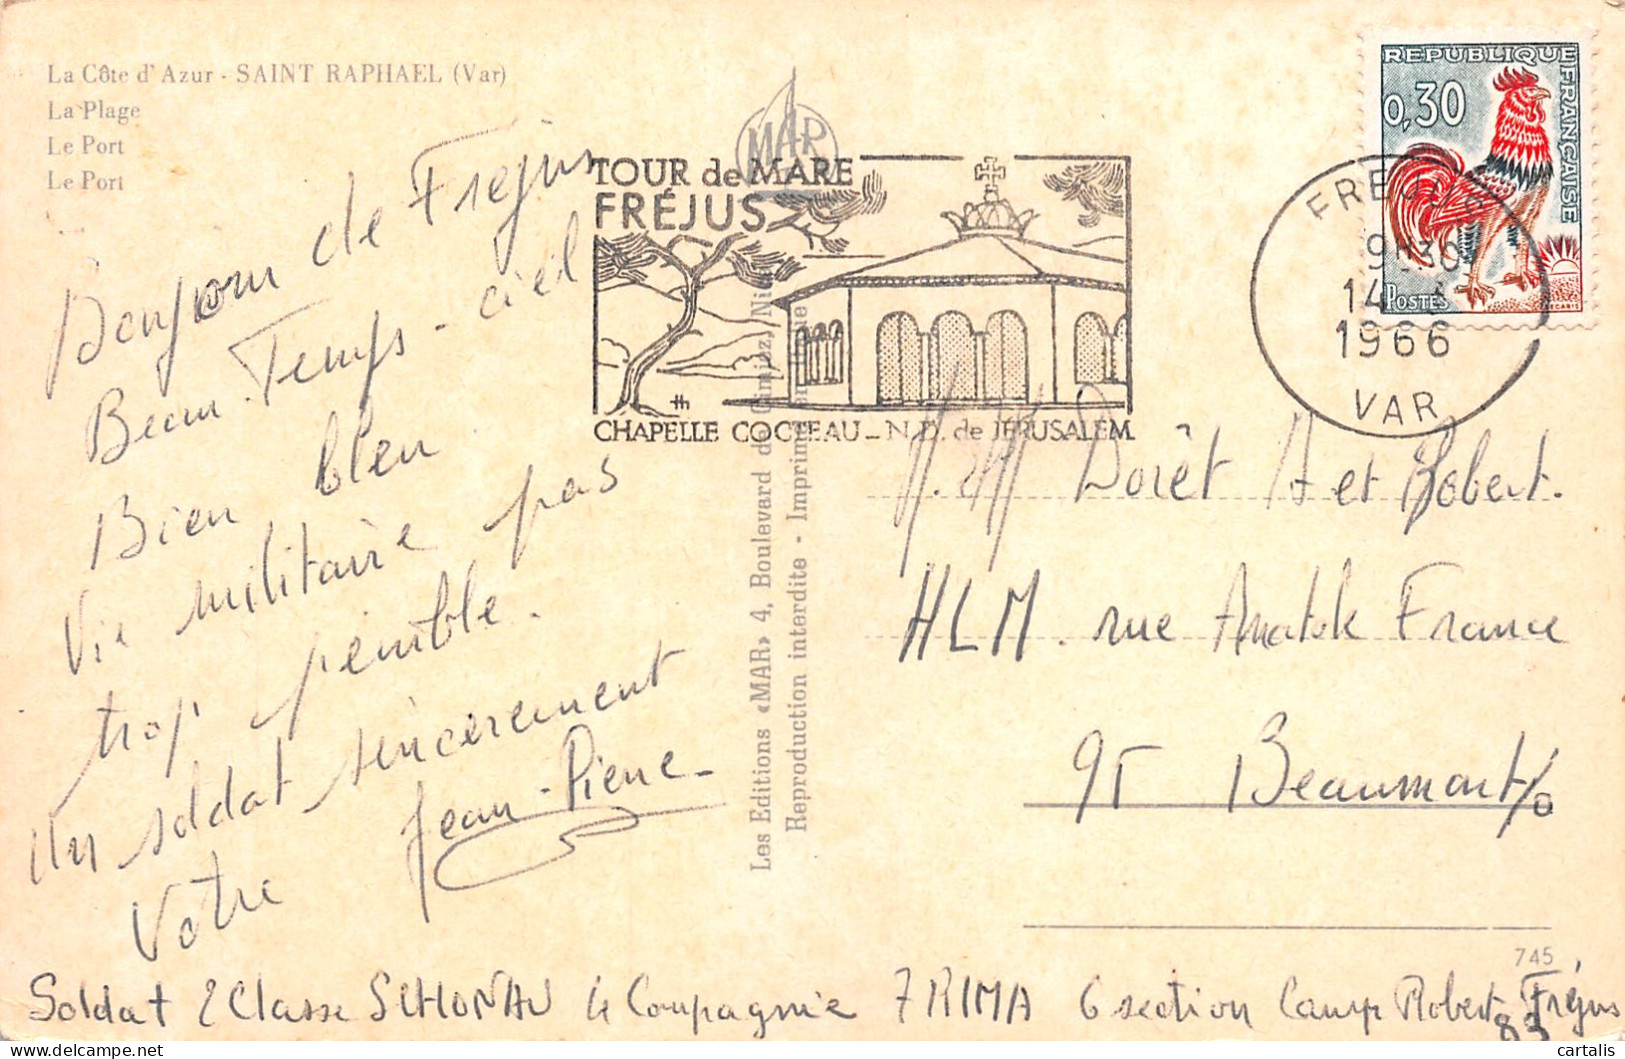 La Côte d'Azur - SAINT RAPHAEL (Var)
La Plage
Le Port
Le Port
Bonjour de Fréjus
Beau-Temps - ciel
Bien bleu
Vie militaire pas
trop pénible.
Un soldat sincèrement
Votre Jean-Pierre
Soldat 2 Classe SCHONAU 4e Compagnie 7 RIMA 6 section Camp Robert Fréjus
83
MAR
TOUR de MARE
FRÉJUS
th
CHAPELLE COCTEAU - N.D. de JÉRUSALEM
Les Editions «MAR» 4, Boulevard de Cimiez, Nice
Reproduction interdite - Imprimerie
REPUBLIQUE FRANÇAISE
0,30
POSTES
DECARIS
FRÉJUS
9H30
14
1966
VAR
Dorêt A et Robert.
HLM. rue Anatole France
95 Beaumont s/o
745
cartalis
delcampe.net